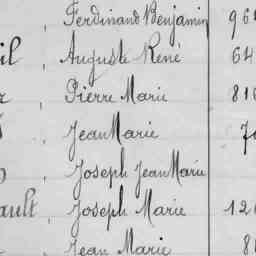 Ferdinand Benjamin 96
il, Auguste René 64
, Pierre Marie 816
, Jean Marie
, Joseph Jean Marie
ault, Joseph Marie 12
, Jean Marie 8